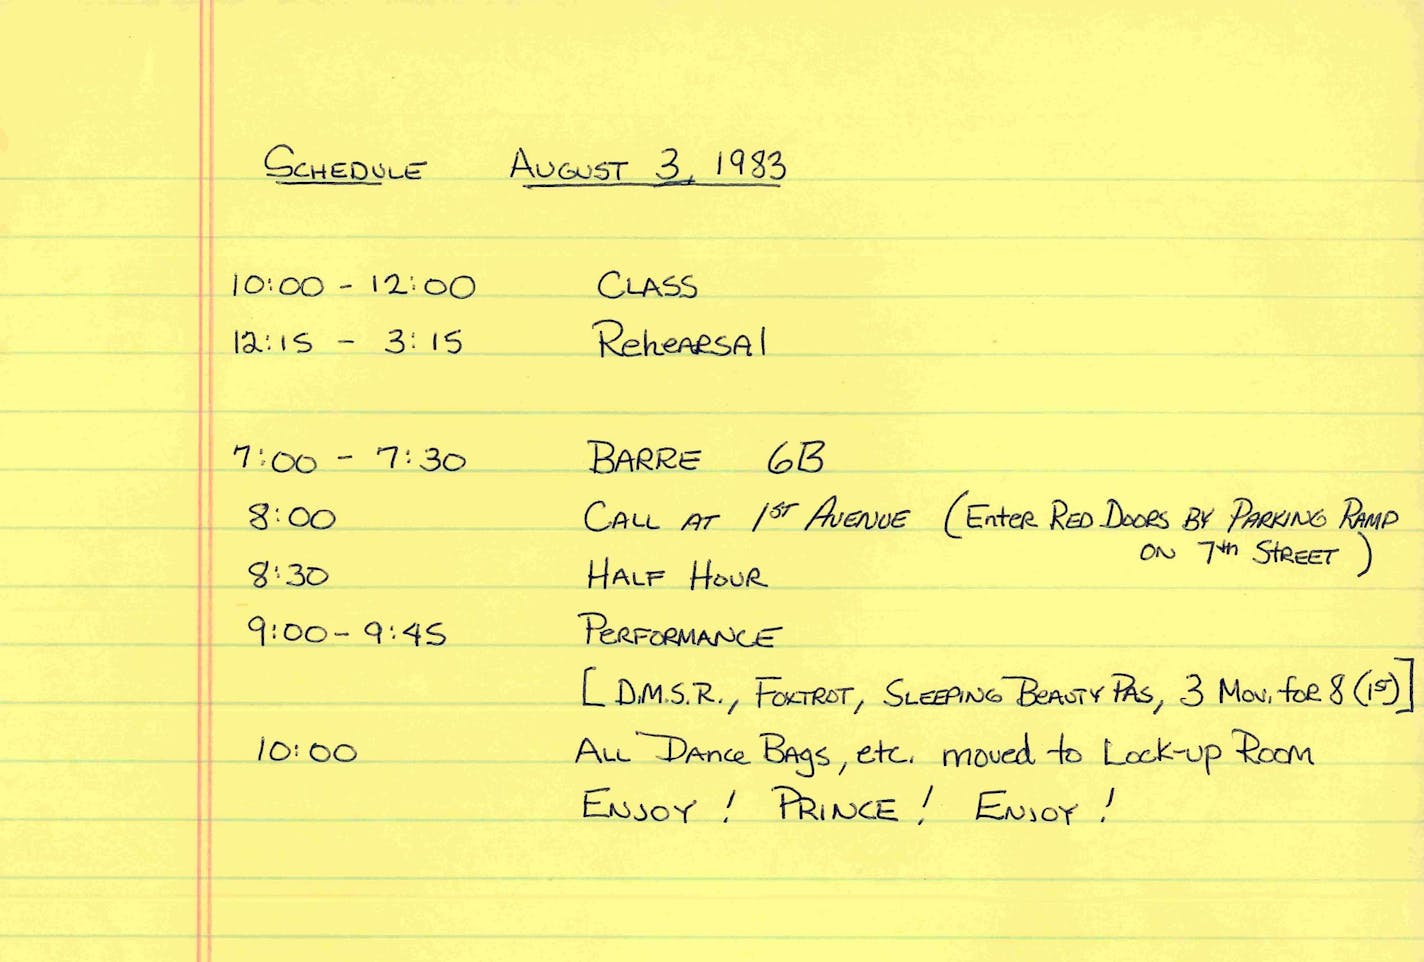 SCHEDULE AUGUST 3, 1983
10:00 - 12:00 CLASS
12:15 - 3:15 REHEARSAL
7:00 - 7:30 BARRE 6B
8:00 CALL AT 1ST AVENUE (ENTER RED DOORS BY PARKING RAMP
ON 7th STREET)
8:30 HALF HOUR
9:00 - 9:45 PERFORMANCE
[D.M.S.R., FOXTROT, SLEEPING BEAUTY PAS, 3 MOV. for 8 (1st)]
10:00 ALL DANCE BAGS, etc. moved to Lock-up Room
ENJOY! PRINCE! ENJOY!